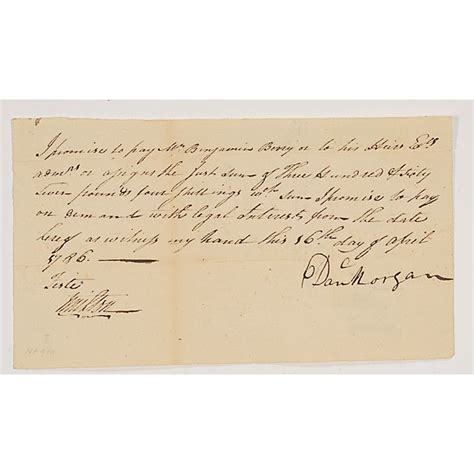 I promise to pay Mr Benjamin Berry or to his Heirs Exrs
admrs or assigns the Just Sum of Three Hundred & Sixty
Seven pounds four shillings wch Sum I promise to pay
on demand with legal Interest from the date
hereof as witness my hand this 16th day of april
1786
Teste
Danl Morgan